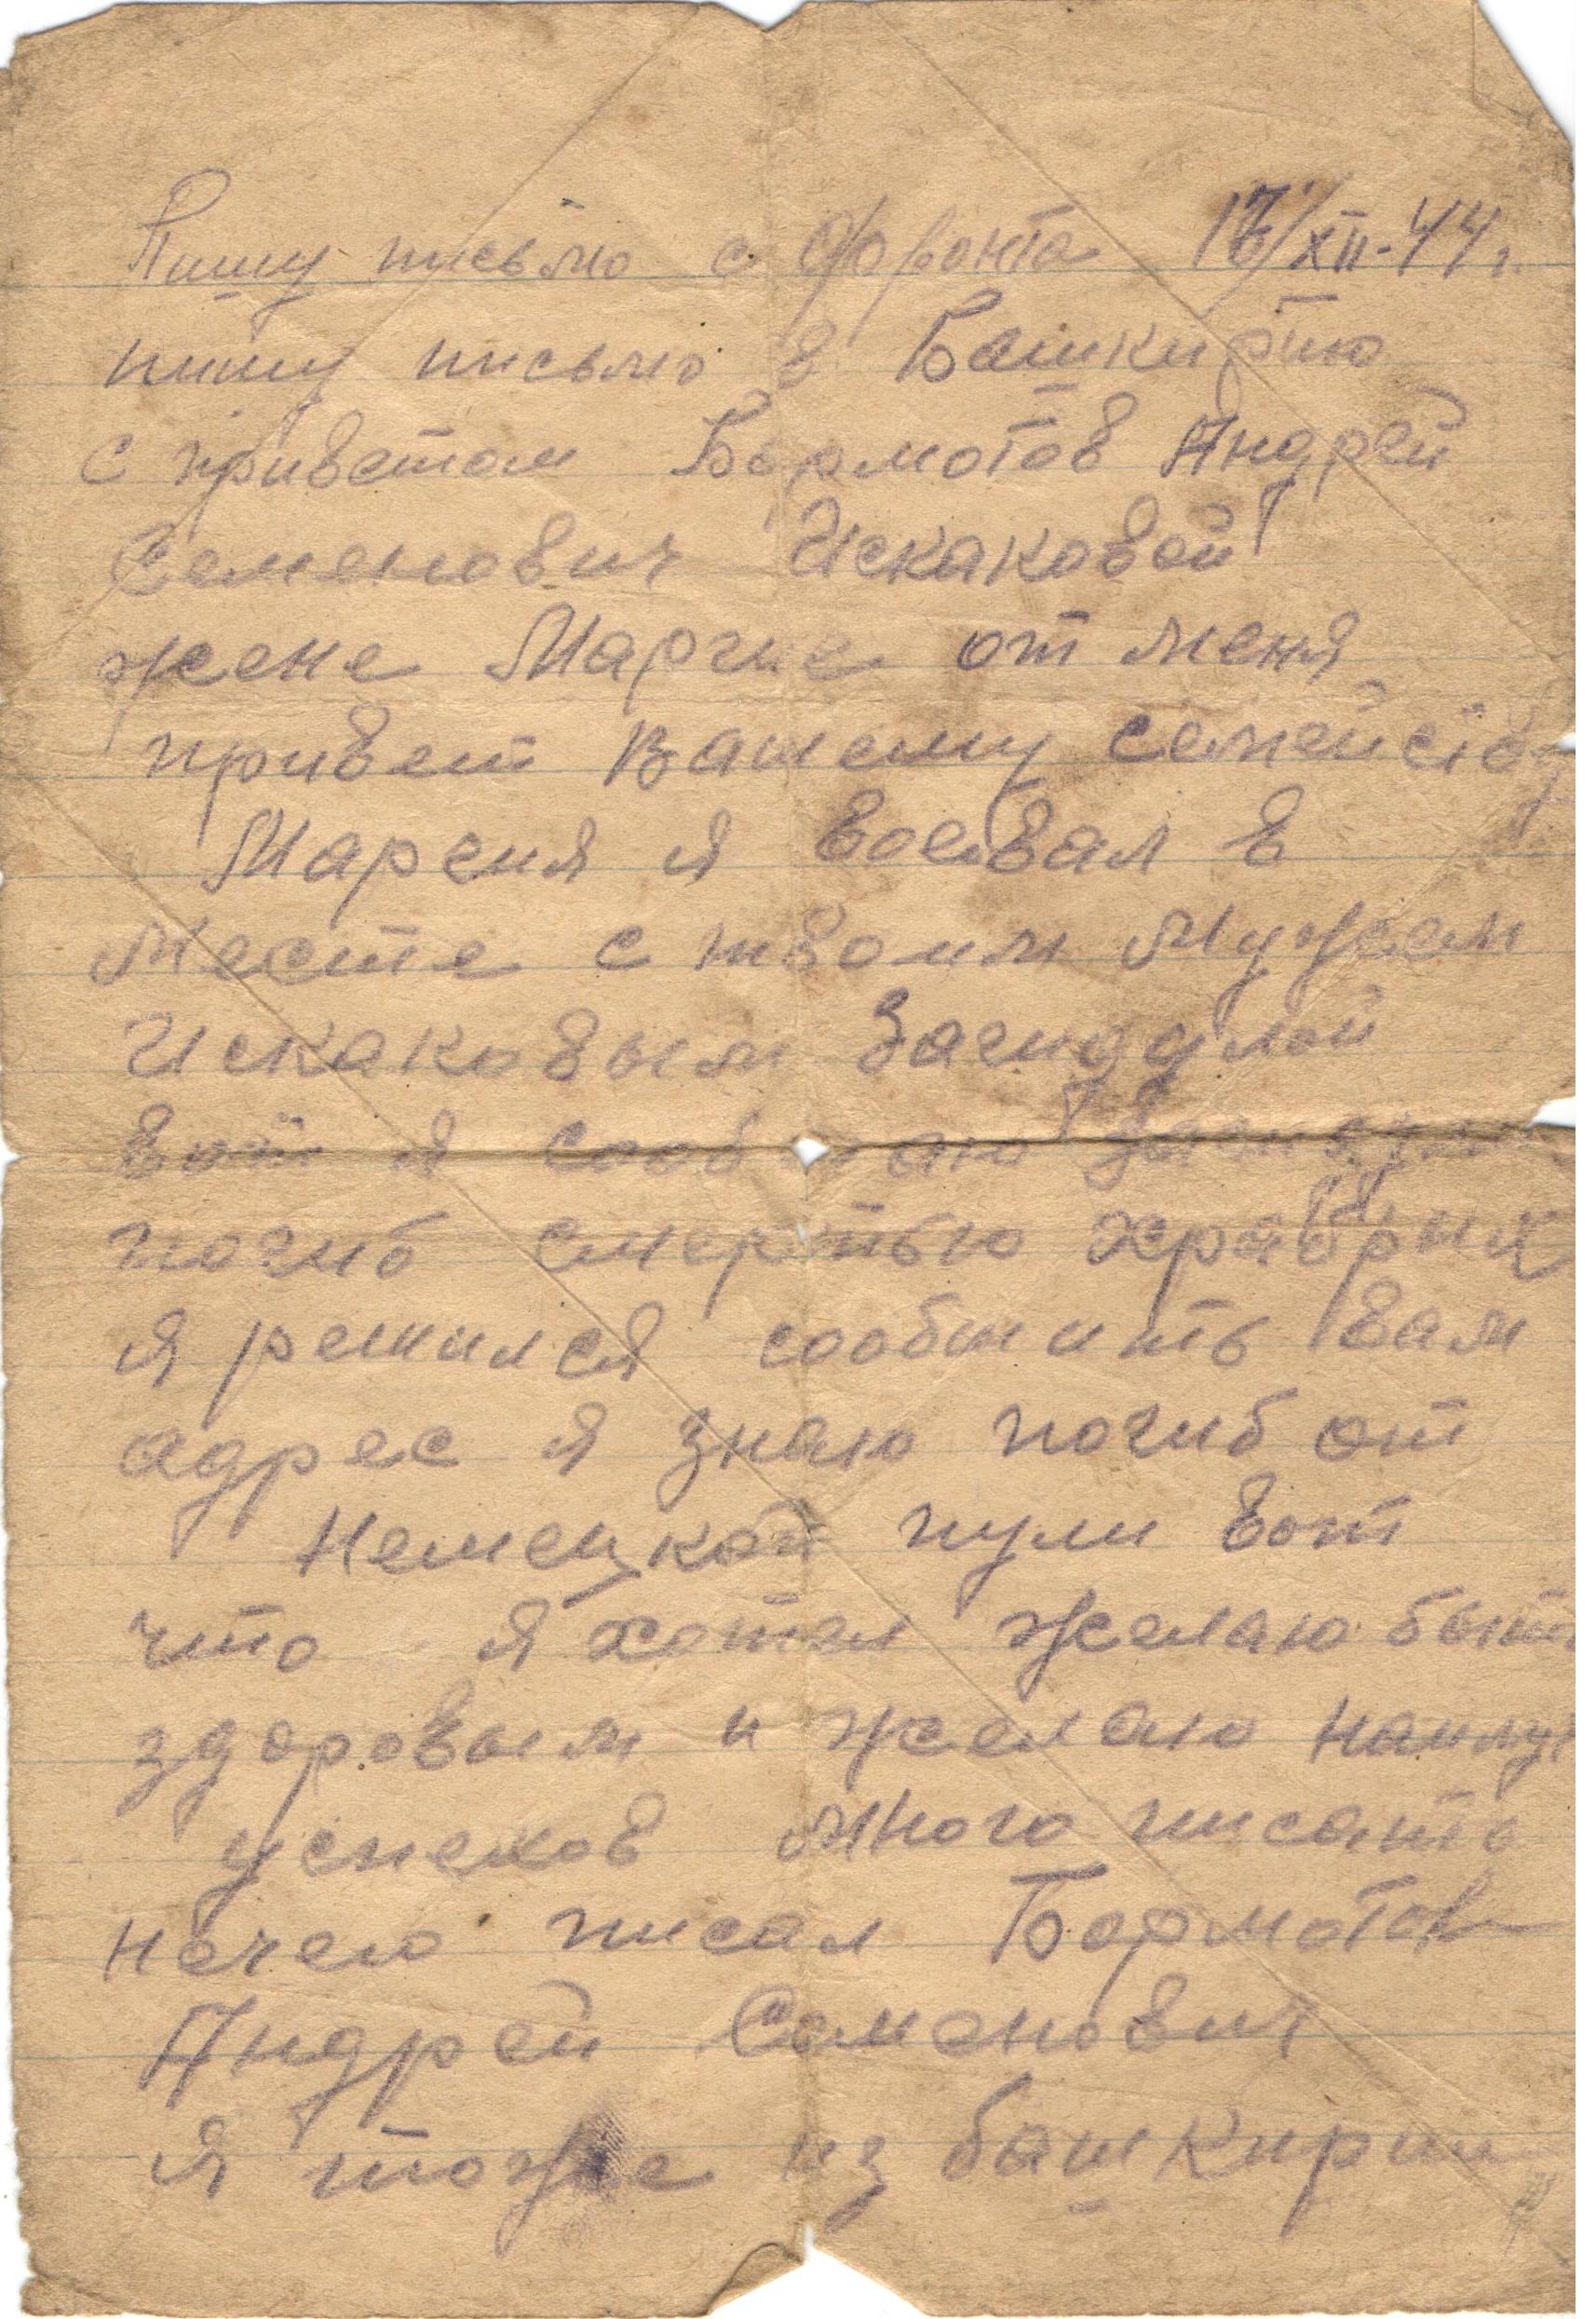 Пишу письмо с фронта 17/XII-44 г.
пишу письмо в Башкирию
с приветом Бормотов Андрей
Семенович Искаковой
жене Маргие от меня
привет вашему семейству
Маргия я воевал в
месте с твоим мужем
Искаковым Загидулой
вот я сообщаю
погиб смертью храбрых
я решился сообщить вам
адрес я знаю погиб от
Немецкой пули вот
что я хотел желаю быть
здоровым и желаю наилу
успехов много писать
нечего писал Бормотов
Андрей Семенович
я тоже из башкирии